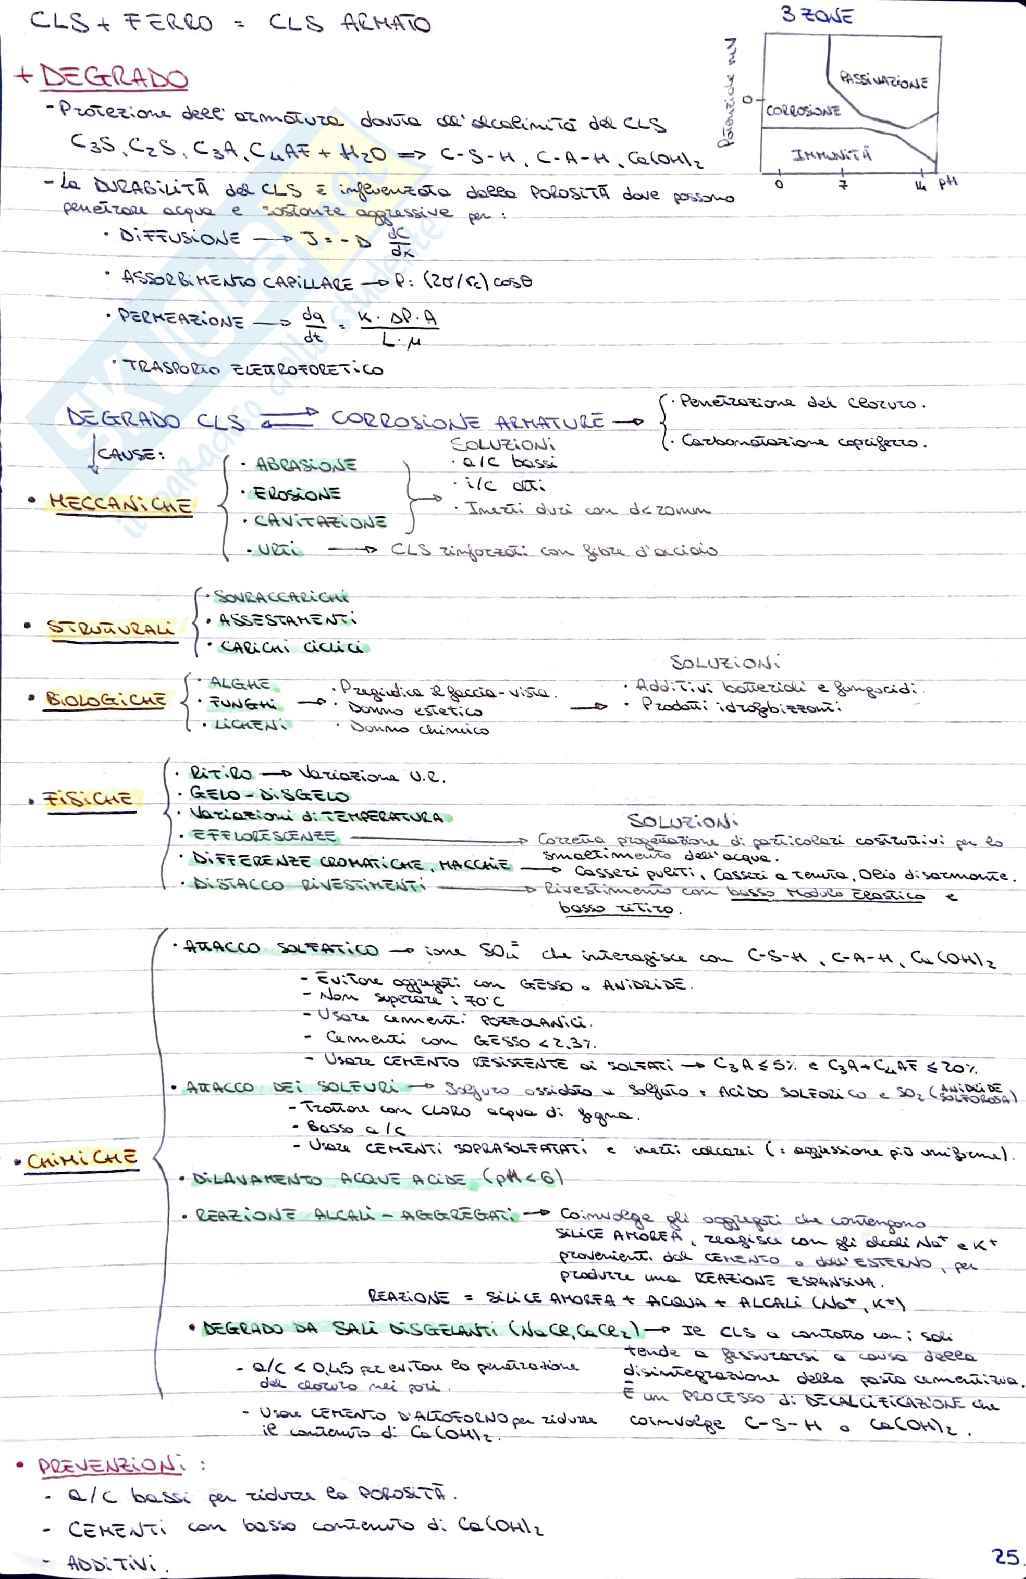 CLS + FERRO = CLS ARMATO
3 ZONE
Potenziale mV
0
PASSIVAZIONE
CORROSIONE
IMMUNITÀ
0 7 14 pH
+ DEGRADO
- Protezione dell'armatura dovuta all'alcalinità del CLS
C3S, C2S, C3A, C4AF + H2O => C-S-H, C-A-H, Ca(OH)2
- La DURABILITÀ del CLS è influenzata dalla POROSITÀ dove possono
penetrare acqua e sostanze aggressive per:
· DIFFUSIONE → J = - D dC/dx
· ASSORBIMENTO CAPILLARE → P: (2σ/rc) cosθ
· PERMEAZIONE → dq/dt = K · ΔP · A / L · μ
· TRASPORTO ELETTROFORETICO
DEGRADO CLS ⇌ CORROSIONE ARMATURE →
· Penetrazione del cloruro.
· Carbonatazione copriferro.
CAUSE:
• MECCANICHE
· ABRASIONE
· EROSIONE
· CAVITAZIONE
SOLUZIONI
· a/c bassi
· i/c alti
· Inerti duri con d<20mm
· URTI → CLS rinforzati con fibre d'acciaio
• STRUTTURALI
· SOVRACCARICHI
· ASSESTAMENTI
· CARICHI CICLICI
• BIOLOGICHE
· ALGHE
· FUNGHI
· LICHENI
→
· Pregiudica il faccia-vista.
· Danno estetico
· Danno chimico
→
SOLUZIONI
· Additivi batterici e fungicidi.
· Prodotti idrofobizzanti
• FISICHE
· RITIRO → Variazione U.R.
· GELO-DISGELO
· Variazioni di TEMPERATURA
SOLUZIONI
· EFFLORESCENZE → Corretta progettazione di particolari costruttivi per lo
smaltimento dell'acqua.
· DIFFERENZE CROMATICHE, MACCHIE → Casseri puliti, Casseri a tenuta, Olio disarmante.
· DISTACCO RIVESTIMENTI → Rivestimento con basso Modulo Elastico e
basso ritiro.
• CHIMICHE
· ATTACCO SOLFATICO → ione SO4= che interagisce con C-S-H, C-A-H, Ca(OH)2
- Evitare aggregati con GESSO o ANIDRIDE.
- Non superare i 70°C
- Usare cementi POZZOLANICI.
- Cementi con GESSO < 2,3%
- Usare CEMENTO RESISTENTE ai SOLFATI → C3A ≤ 5% e C3A + C4AF ≤ 20%
· ATTACCO DEI SOLFURI → Solfuro ossidato a solfato = ACIDO SOLFORICO e SO2 (ANIDRIDE SOLFOROSA)
- Trattare con CLORO acqua di fogna.
- Basso a/c
- Usare CEMENTI SOPRASOLFATATI e inerti calcarei (= aggressione più uniforme).
· DILAVAMENTO ACQUE ACIDE (pH<6)
· REAZIONE ALCALI-AGGREGATI → Coinvolge gli aggregati che contengono
SILICE AMORFA, reagisce con gli alcali Na+ e K+
provenienti dal CEMENTO o dall'ESTERNO, per
produrre una REAZIONE ESPANSIVA.
REAZIONE = SILICE AMORFA + ACQUA + ALCALI (Na+, K+)
· DEGRADO DA SALI DISGELANTI (NaCl, CaCl2) → Il CLS a contatto con i sali
tende a fessurarsi a causa della
disintegrazione della pasta cementizia.
È un PROCESSO di DECALCIFICAZIONE che
coinvolge C-S-H o Ca(OH)2.
- a/c < 0,45 per evitare la penetrazione
del cloruro nei pori.
- Usare CEMENTO D'ALTOFORNO per ridurre
il contenuto di Ca(OH)2.
• PREVENZIONI:
- a/c bassi per ridurre la POROSITÀ.
- CEMENTI con basso contenuto di Ca(OH)2
- ADDITIVI.
25.